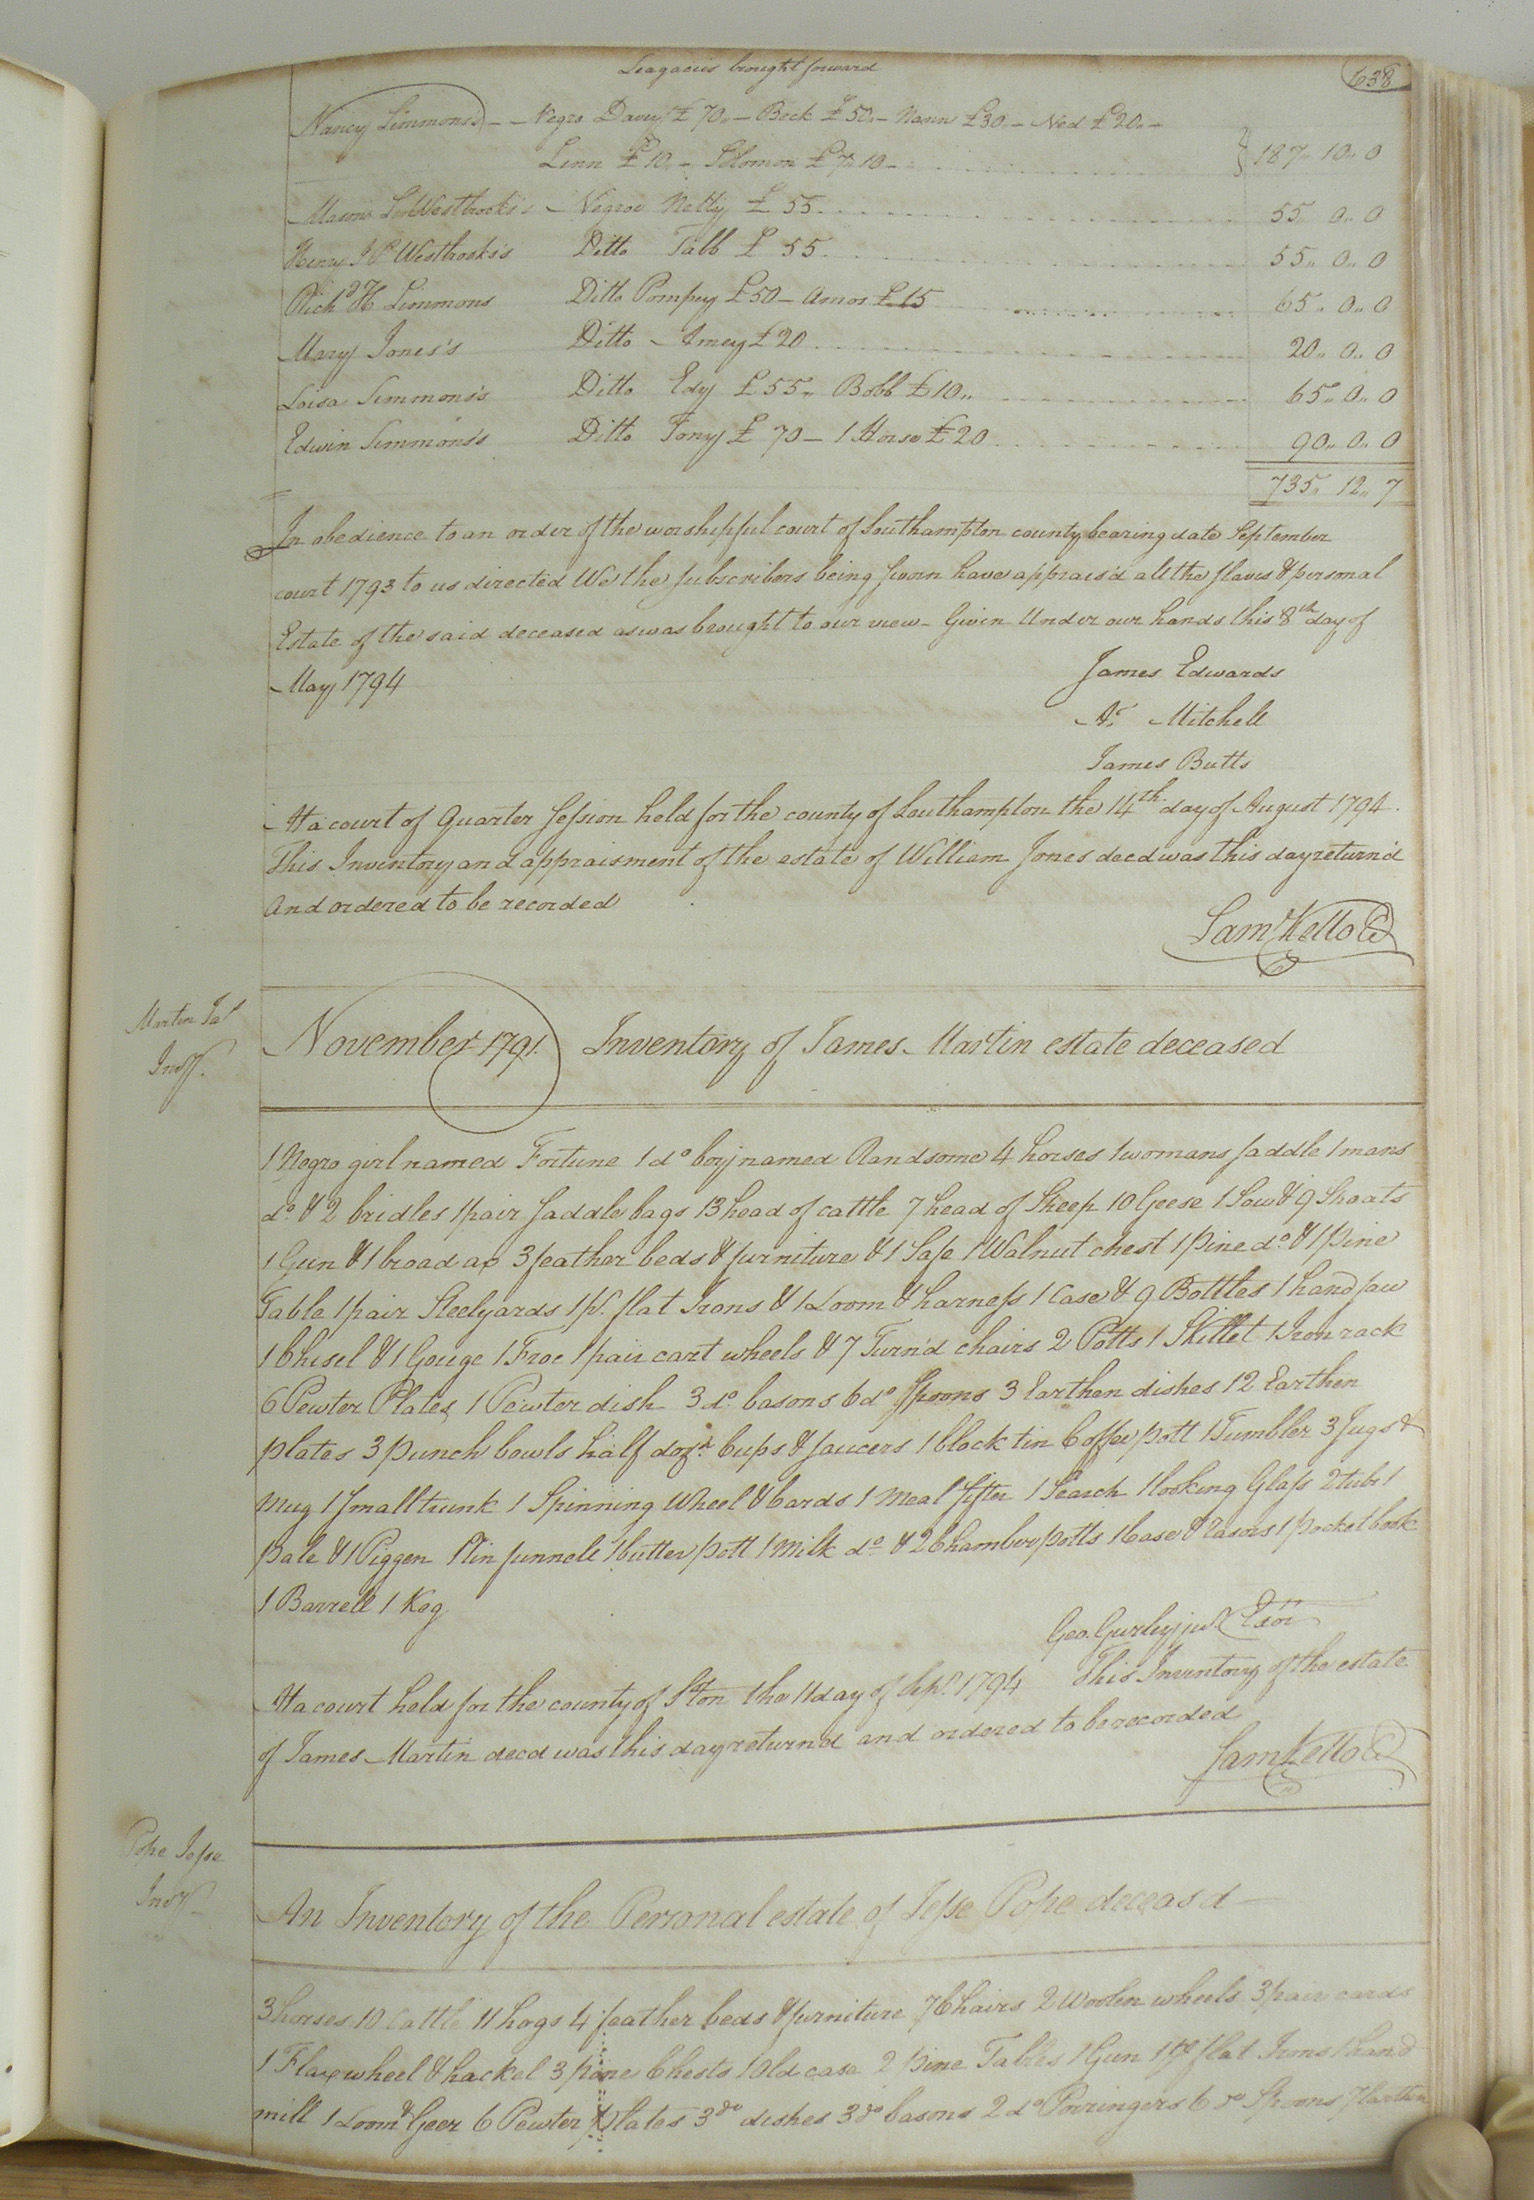 Leagacies brought forward
638
Nancy Simmons's - Negro Davy £70.. - Beck £50.. - Nann £30 - Ned £20.. -
Linn £10.. - Solomon £7.. 10 - } 187.. 10.. 0
Mason L Westbrooks's - Negroe Netty £55 55.. 0.. 0
Henry J P Westbrooks's Ditto Tabb £55 55.. 0.. 0
Richd H Simmons Ditto Pompey £50 - Amos £15 65.. 0.. 0
Mary Jones's Ditto - Amey £20 20.. 0.. 0
Loisa Simmons's Ditto Edy £55.. Bobb £10.. 65.. 0.. 0
Edwin Simmons's Ditto Tony £70 - 1 Horse £20 90.. 0.. 0
735.. 12.. 7
In obedience to an order of the worshipful court of Southampton county bearing date September
court 1793 to us directed We the subscribers being sworn have apprais'd all the slaves & personal
Estate of the said deceased as was brought to our view - Given Under our hands this 8th day of
May 1794
James Edwards
Mitchell
James Butts
At a court of Quarter Session held for the county of Southampton the 14th day of August 1794.
This Inventory and appraisment of the estate of William Jones decd was this day return'd
And ordered to be recorded
Saml Kello Cl
Martin Jas
Invy.
November 1791. Inventory of James Martin estate deceased
1 Negro girl named Fortune 1 do boy named Randsome 4 horses 1 womans saddle 1 mans
do. & 2 bridles 1 pair saddle bags 13 head of cattle 7 head of Sheep 10 Geese 1 Sow & 9 Shoats
1 Gun & 1 broad ax 3 feather beds & furniture & 1 Safe 1 Walnut chest 1 pine do. & 1 pine
Table 1 pair Steelyards 1 pr. flat Irons & 1 Loom & harness 1 Case & 9 Bottles 1 hand saw
1 Chisel & 1 Gouge 1 Froe 1 pair cart wheels & 7 Turn'd chairs 2 Potts 1 Skillet 1 Iron rack
6 Pewter Plates 1 Pewter dish 3 do. basons 6 do Spoons 3 Earthen dishes 12 Earthen
plates 3 punch bowls half dozn. Cups & saucers 1 block tin Coffee pott 1 Tumbler 3 Jugs &
Mug 1 small trunk 1 Spinning Wheel & Cards 1 Meal sifter 1 Search 1 looking Glass 2 tubs 1
Pale & 1 Piggen 1 Tin funnell 1 butter pott 1 Milk do & 2 Chamber potts 1 Case & rasors 1 pocket book
1 Barrell 1 Kag
Geo. Gurley junr Exor
At a court held for the county of S'ton the 11 day of Sepr. 1794 This Inventory of the estate
of James Martin decd was this day returnd and ordered to be recorded
Saml Kello Cl
Pope Jesse
Invy
An Inventory of the Personal estate of Jesse Pope deceasd -
3 horses 10 Cattle 11 hogs 4 feather beds & furniture 7 Chairs 2 Woolen wheels 3 pair cards
1 Flax wheel & hackel 3 pine Chests 1 Old case 2 pine Tables 1 Gun 1 pr flat Irons 1 hand
mill 1 Loom & Geer 6 Pewter plates 3 do dishes 3 do basons 2 do Porringers 6 do Spoons 7 Earthen